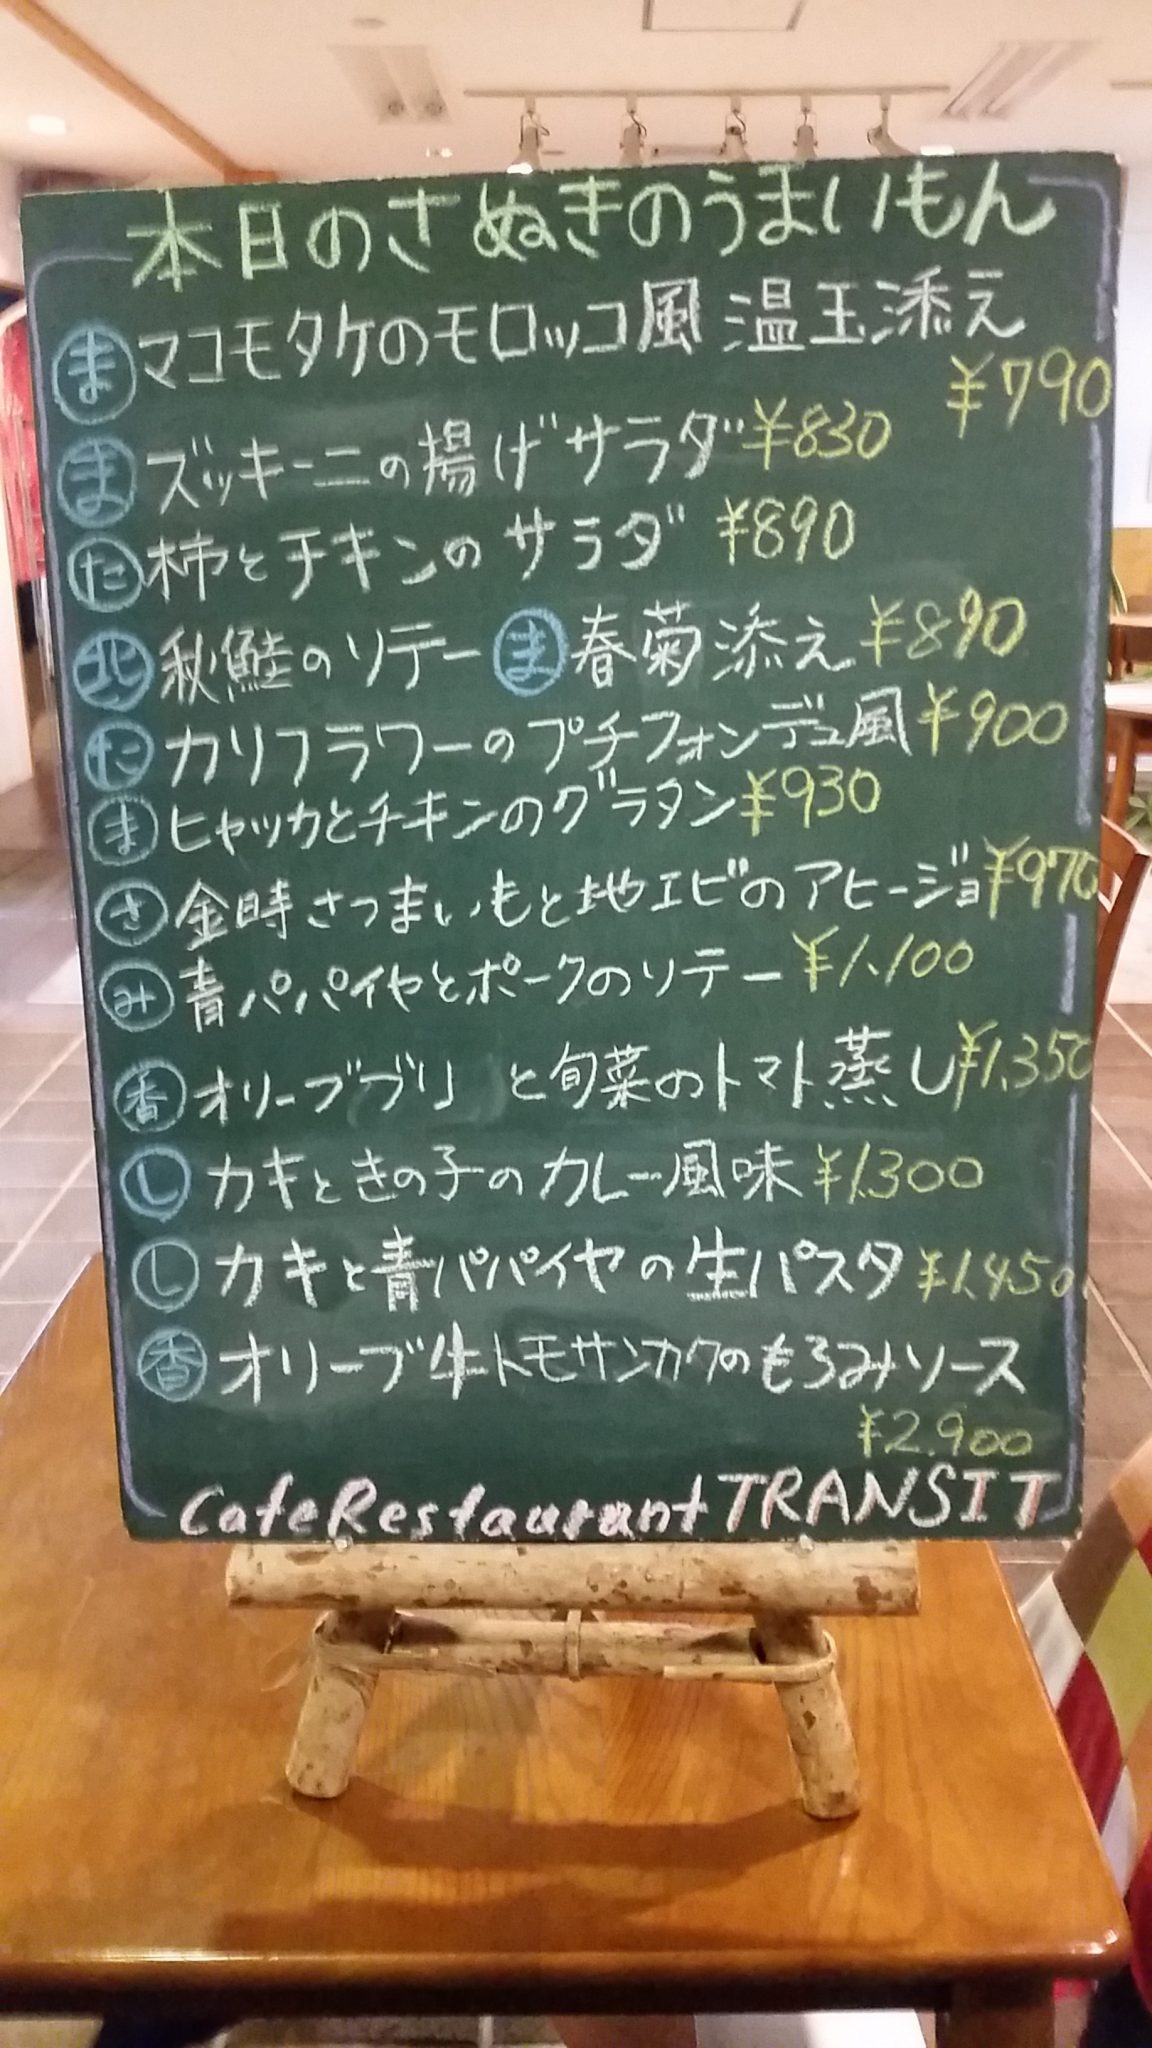 本日のさぬきのうまいもん
ま マコモタケのモロッコ風 温玉添え
¥790
ま ズッキーニの揚げサラダ ¥830
た 柿とチキンのサラダ ¥890
北 秋鮭のソテー ま 春菊添え ¥890
た カリフラワーのプチフォンデュ風 ¥900
ま ヒャッカとチキンのグラタン ¥930
さ 金時さつまいもと地エビのアヒージョ ¥970
み 青パパイヤとポークのソテー ¥1.100
香 オリーブブリ と旬菜のトマト蒸し ¥1.350
し カキときの子のカレー風味 ¥1.300
し カキと青パパイヤの生パスタ ¥1.450
香 オリーブ牛トモサンカクのもろみソース
¥2.900
Cafe Restaurant TRANSIT